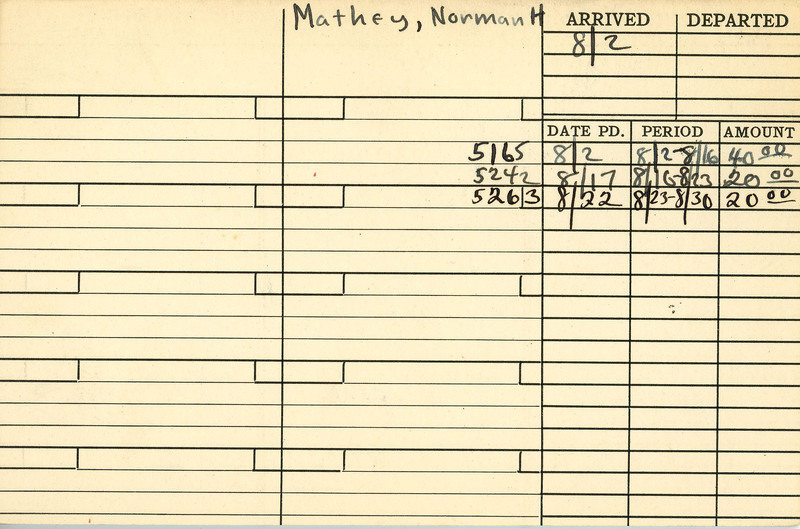 Mathey, Norman H
ARRIVED DEPARTED
8/2
DATE PD. PERIOD AMOUNT
5165 8/2 8/2-8/16 40 00
5242 8/17 8/16-8/23 20 00
5263 8/22 8/23-8/30 20 00